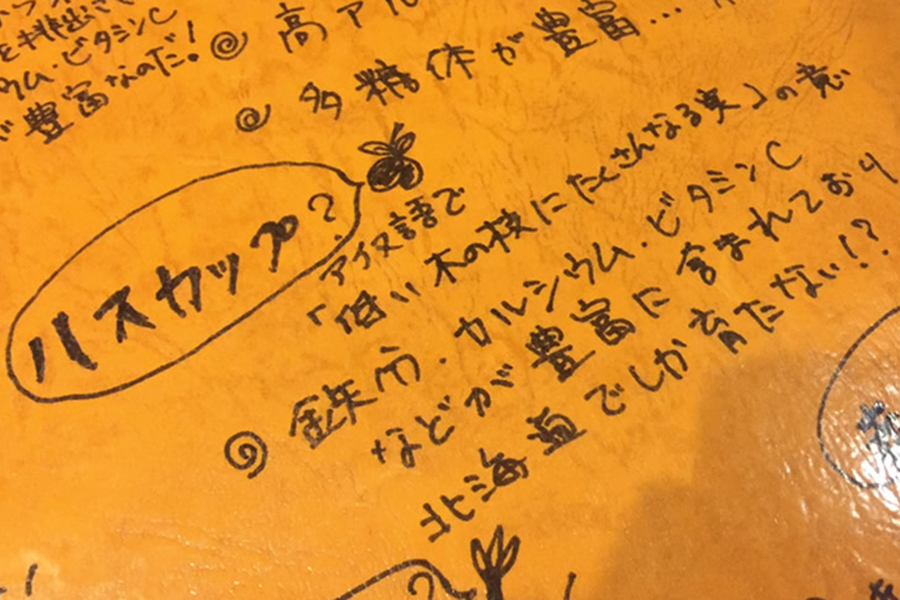 を排出さ
ウム・ビタミンC
が豊富なのだ！
高アル
多糖体が豊富…
ハスカップ？
アイヌ語で
「低い木の枝にたくさんなる実」の意
鉄分・カルシウム・ビタミンC
などが豊富に含まれており
北海道でしか育たない！？
？